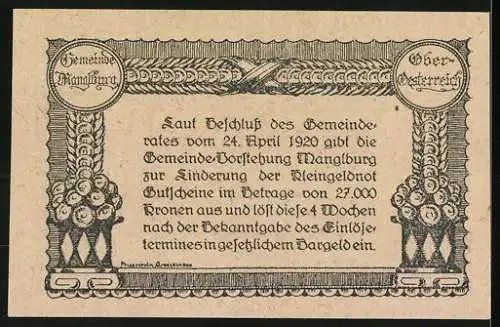 Gemeinde
Manglburg
Ober-
Oesterreich
Laut Beschluß des Gemeinde-
rates vom 24. April 1920 gibt die
Gemeinde-Vorstehung Manglburg
zur Linderung der Kleingeldnot
Gutscheine im Betrage von 27.000
Kronen aus und löst diese 4 Wochen
nach der Bekanntgabe des Einlöse-
termines in gesetzlichem Bargeld ein.